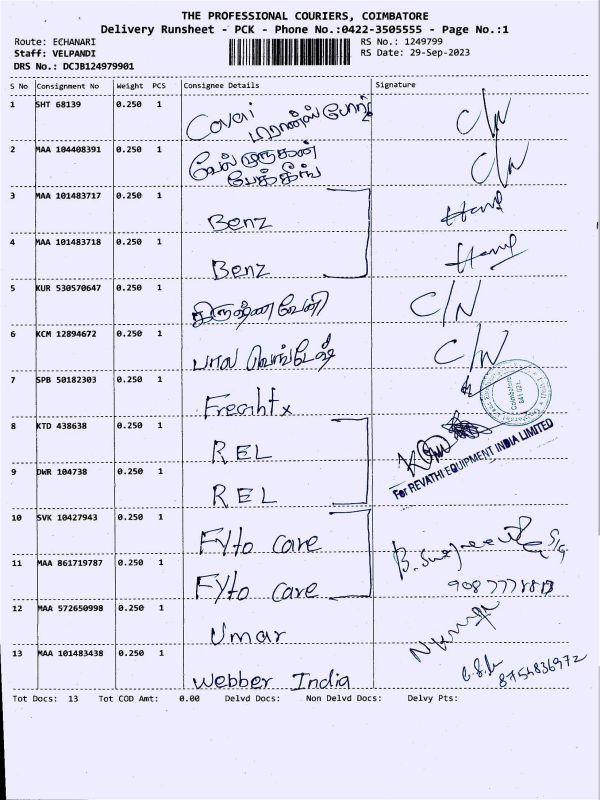 THE PROFESSIONAL COURIERS, COIMBATORE
Delivery Runsheet - PCK - Phone No.:0422-3505555 - Page No.:1
Route: ECHANARI
RS No.: 1249799
Staff: VELPANDI
RS Date: 29-Sep-2023
DRS No.: DCJB124979901
S No Consignment No Weight PCS Consignee Details Signature
1 SHT 68139 0.250 1 Covai C/N
2 MAA 104408391 0.250 1 வேல்முருகன் C/N
3 MAA 101483717 0.250 1 Benz
4 MAA 101483718 0.250 1 Benz
5 KUR 530570647 0.250 1 C/N
6 KCM 12894672 0.250 1 பால வெங்டேஷ் C/N
7 SPB 50182303 0.250 1
Coimbatore
641 021.
8 KTD 438638 0.250 1 REL
For REVATHI EQUIPMENT INDIA LIMITED
9 DWR 104738 0.250 1 REL
10 SVK 10427943 0.250 1 Fyto care
11 MAA 861719787 0.250 1 Fyto care
12 MAA 572650998 0.250 1 Umar
13 MAA 101483438 0.250 1 Webber India 8754836972
Tot Docs: 13 Tot COD Amt: 0.00 Delvd Docs: Non Delvd Docs: Delvy Pts: